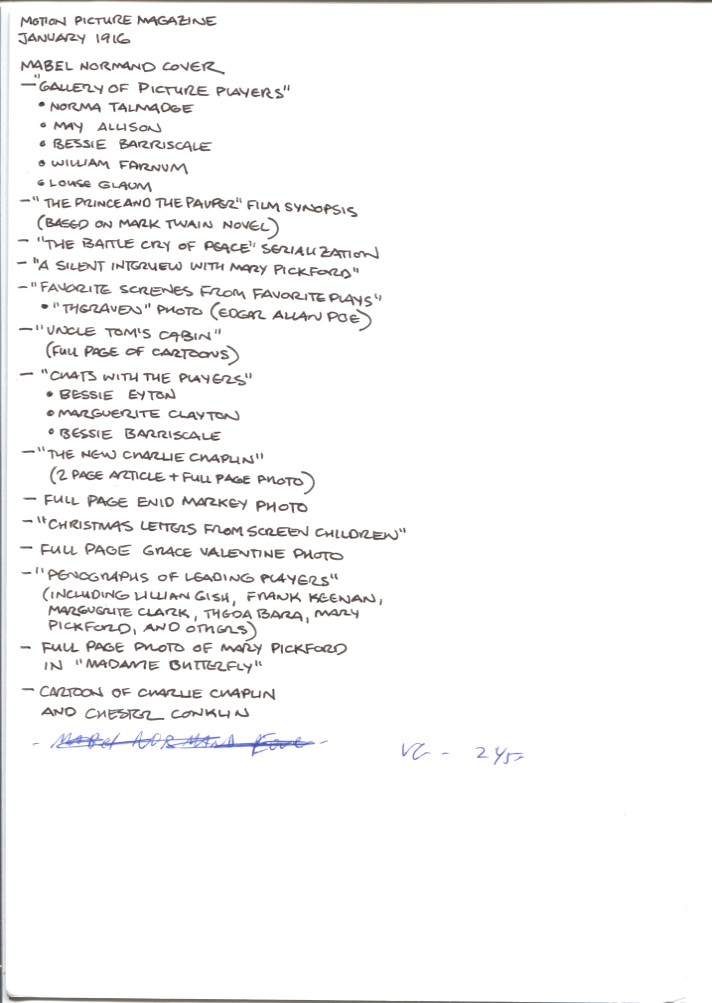 MOTION PICTURE MAGAZINE
JANUARY 1916
MABEL NORMAND COVER
- "GALLERY OF PICTURE PLAYERS"
• NORMA TALMADGE
• MAY ALLISON
• BESSIE BARRISCALE
• WILLIAM FARNUM
• LOUISE GLAUM
- "THE PRINCE AND THE PAUPER" FILM SYNOPSIS
(BASED ON MARK TWAIN NOVEL)
- "THE BATTLE CRY OF PEACE" SERIALIZATION
- "A SILENT INTERVIEW WITH MARY PICKFORD"
- "FAVORITE SCRENES FROM FAVORITE PLAYS"
• "THE RAVEN" PHOTO (EDGAR ALLAN POE)
- "UNCLE TOM'S CABIN"
(FULL PAGE OF CARTOONS)
- "CHATS WITH THE PLAYERS"
• BESSIE EYTON
• MARGUERITE CLAYTON
• BESSIE BARRISCALE
- "THE NEW CHARLIE CHAPLIN"
(2 PAGE ARTICLE + FULL PAGE PHOTO)
- FULL PAGE ENID MARKEY PHOTO
- "CHRISTMAS LETTERS FROM SCREEN CHILDREN"
- FULL PAGE GRACE VALENTINE PHOTO
- "PENOGRAPHS OF LEADING PLAYERS"
(INCLUDING LILLIAN GISH, FRANK KEENAN,
MARGUERITE CLARK, THEDA BARA, MARY
PICKFORD, AND OTHERS)
- FULL PAGE PHOTO OF MARY PICKFORD
IN "MADAME BUTTERFLY"
- CARTOON OF CHARLIE CHAPLIN
AND CHESTER CONKLIN
- MABEL NORMAND - VG - 245-